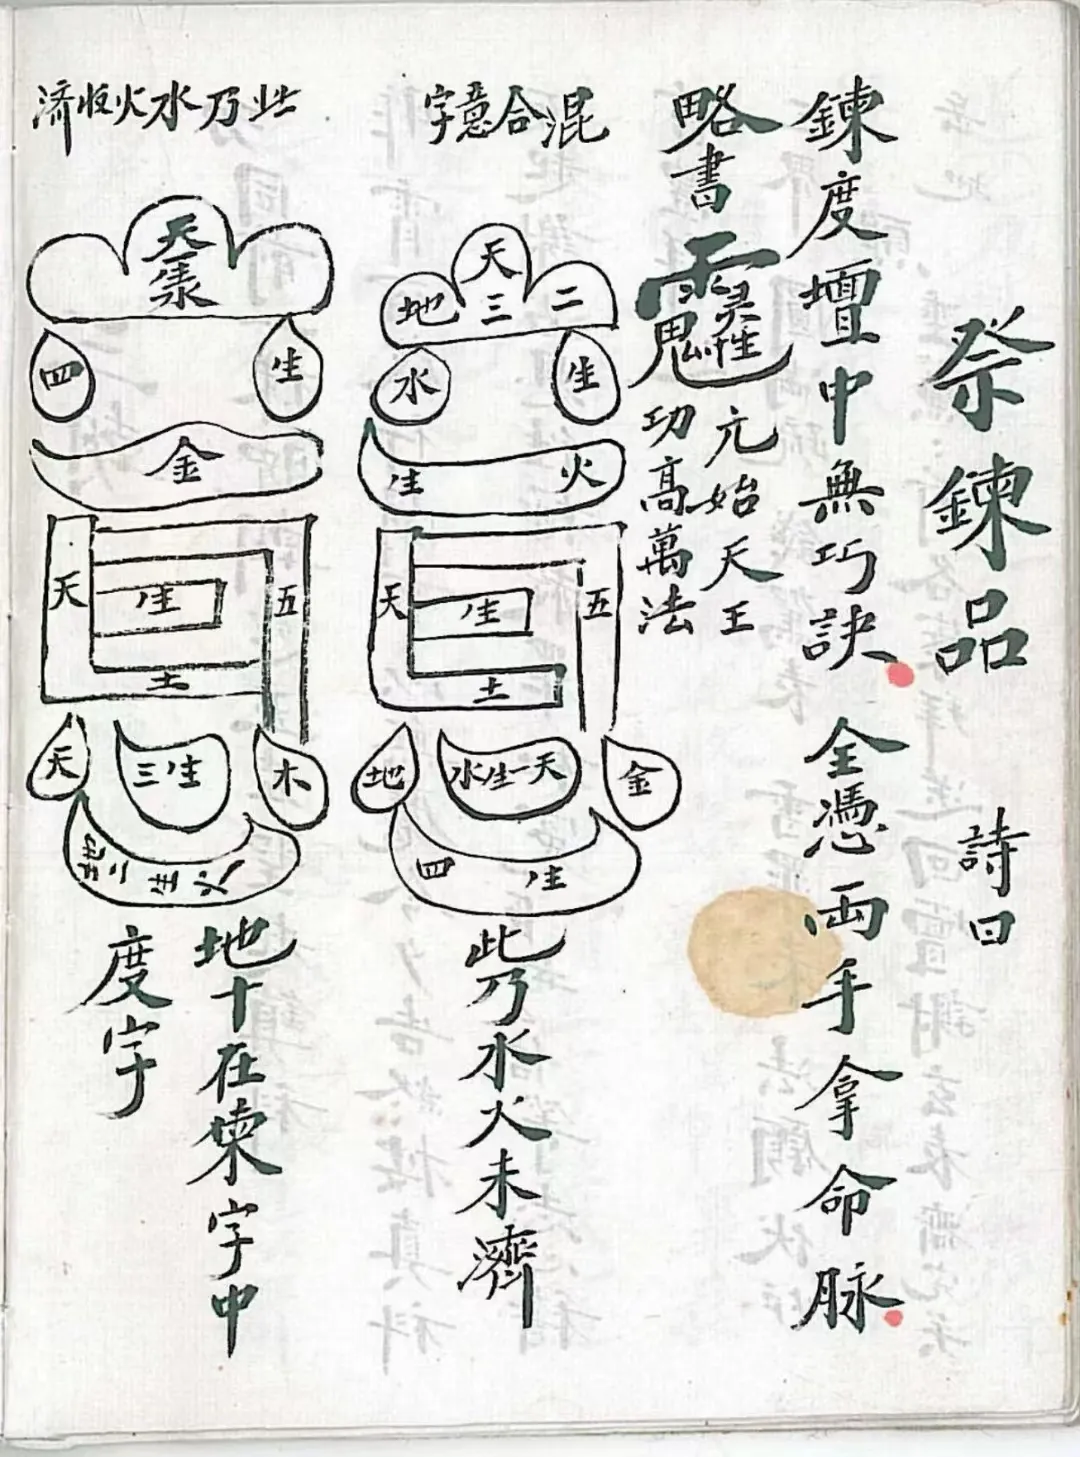 祭鍊品
詩曰
鍊度壇中無巧訣
全憑両手拿命脉
略書
元始天王
功高萬法
混合意字
天三
地
二
水
生
生
火
天
生
五
土
地
水生一天
金
四
生
此乃水火未濟
此乃水火
濟
天
四
生
金
天
生
五
土
天
三生
木
地十在
字中
度字